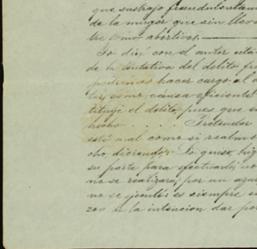 que sustrajo fraudulentam
de la mujer que sin llev
tre como abortivos.
Yo diré con el autor cita
de la tentativa del delito fr
podremos hacer cargo al
ley como causa eficiente
tituye el delito, pues que
hecho . . . . Pretender
está mal como si realme
cho, diciendo: Se quiso, hiz
su parte para efectuarlo, no
no se realizara, por un aque
no se ejecutó es siempre
zos a la intención dar po